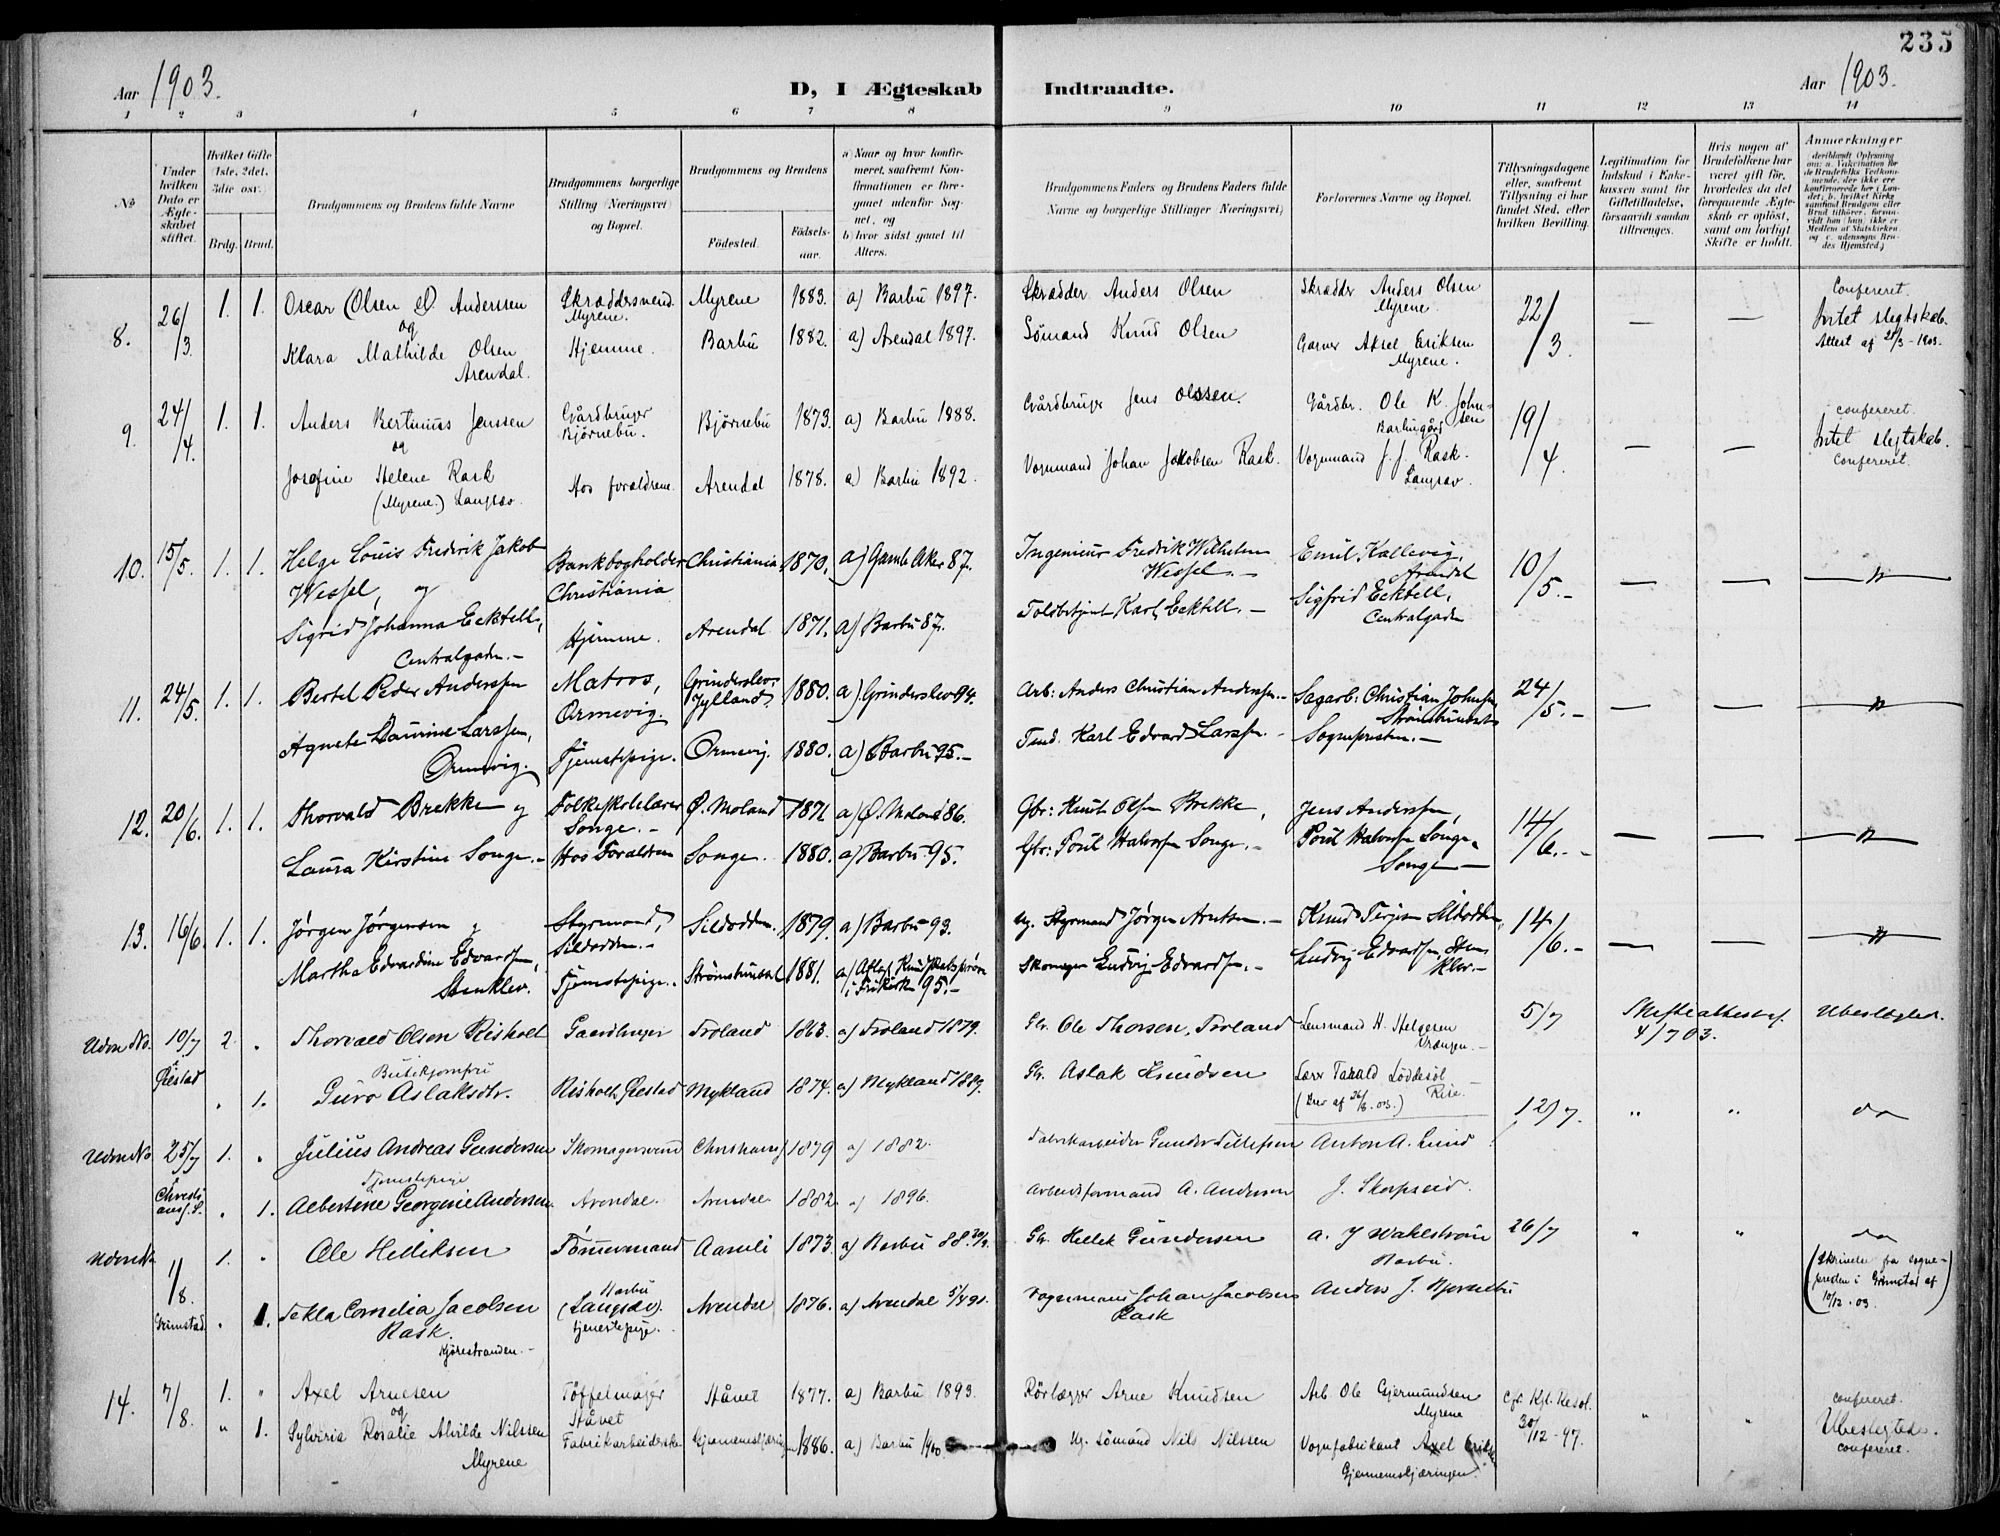 235
Aar 1903.
D, I Ægteskab Indtraadte.
Aar 1903.
1 2 3 4 5 6 7 8 9 10 11 12 13 14
№
Under hvilken Dato er Ægteskabet stiftet.
Hvilket Gifte (1ste, 2det, 3die osv.
Brdg. Brud.
Brudgommens og Brudens fulde Navne
Brudgommens borgerlige Stilling (Næringsvei) og Bopæl.
Brudgommens og Brudens
Födested.
Födselsaar.
a) Naar og hvor konfirmeret, saafremt Konfirmationen er foregaaet udenfor Sognet, og
b) hvor sidst gaaet til Alters.
Brudgommens Faders og Brudens Faders fulde Navne og borgerlige Stillinger Næringsvei)
Forlovernes Navne og Bopæl.
Tillysningsdagene eller, saafremt Tillysning ei har fundet Sted, efter hvilken Bevilling.
Legitimation for Indskud i Enkekassen samt for Giftetilladelse, forsaavidt saadan tiltrænges.
Hvis nogen af Brudefolkene har været gift för, hvorledes da det foregaaende Ægteskab er oplöst, samt om lovligt Skifte er holdt.
Anmærkninger
8. 26/3. 1. 1. Oscar (Olsen el) Anderssen Skræddersvend. Myrene 1883. a) Barbu 1897. Skrædder Anders Olsen Skrædder Anders Olsen 22/3. — — Confereret.
og Myrene. Myrene. Intet slegtskab.
Klara Mathilde Olsen Hjemme. Barbu 1882. a) Arendal 1897. Sömand Knud Olsen Garver Aksel Eriksen Attest af 21/3-1903.
Arendal. Myrene.
9. 24/4. 1. 1. Anders Bertinius Jenssen Gårdbruger Bjørnebu 1873. a) Barbu 1888. Gårdbruger Jens Olssen. Gårdbr. Ole K. Johnsen 19/4. — — confereret.
og Bjørnebu. Barbugård Intet slegtskab.
Josefine Helene Rask Hos forældrene. Arendal 1878. a) Barbu 1892. Vognmand Johan Jakobsen Rask. Vognmand J. J. Rask. confereret.
(Myrene.) Langsæv. Langsæv.
10. 15/5. 1. 1. Helge Louis Fredrik Jakob Bankbogholder Christiania 1870. a) Gamle Aker 87. Ingenieur Fredrik Wilhelm Emil Kallevig, 10/5.- — —
Wessel, og Christiania Wessel.- Arendal
Sigrid Johanna Ecktell, Hjemme. Arendal 1871. a) Barbu 87. Toldbetjent Karl Ecktell.- Sigfrid Ecktell,
Centralgaden.- Centralgaden
11. 24/5. 1. 1. Bertel Peder Anderssen Matros, Grinderslev, Jylland, 1880. a) Grinderslev 94. Arb: Anders Christian Anderssen.- Sagarb: Christian Johnsen 24/5.- — —
Ormevig. Strømsbunest
Agnete Laurine Larssen, Tjenestepige. Ormevig. 1880. a) Barbu 95.- Tend. Karl Edvard Larssen.- Sognepresten.-
Ormevig.
12. 20/6. 1. 1. Thorvald Brekke og Folkeskolelærer Ø. Moland 1871 a) Ø. Moland 86. Gbr: Knut Olsen Brekke, Jens Anderssen, 14/6.- — —
Songe.-
Laura Kirstine Songe.- Hos Forældrene Songe. 1880. a) Barbu 95. Gbr: Poul Halvorsen Songe.- Poul Halvorsen Songe.
Songe —
13. 16/6. 1. 1. Jørgen Jørgensen og Styrmand, Sildodden. 1879. a) Barbu 93. Ug. Styrmand Jørgen Arntsen.- Knud Terjesen Sildodden, 14/6.- — —
Sildodden.-
Martha Edvardine Edvardsen, Tjenestepige. Strømsbunest 1881. a) Aflagt Kundskabsprøve i Frikirk 95.- Skomager Ludvig Edvardsen.- Ludvig Edvardsen, Stenklev.-
Stenklev.
Uden No. 10/7 2. " Thorvald Olsen Risholt Gaardbruger Froland 1863. a) Froland 1879. Gbr. Ole Thorsen, Froland Lensmand H. Helgesen 5/7 Skifteattest af 4/7 03. Ubeslægtet.
Øiestad Butikjomfru Vrængen.-
" 1. Guro Aslaksdtr. Risholt, Øiestad Mykland 1874. a) Mykland 1889. Gbr. Aslak Knudsen Lærer Tarald Löddesöl Rise
(Brev af 26/8.03.)
Uden No 25/7 1. " Julius Andreas Gundersen Skomagersvend Christiansf 1879 a) 1882. Fabrikarbeider Gunder Tellefsen Anton A. Lund 12/7. " " do
Christiansf. S. Tjenestepige
" 1. Albertine Georgine Andersen. Arendal. Arendal 1882. a) 1896. Arbeidsformand A. Andersen J. Skorpseid.
Uden No 1/8. 1. " Ole Helliksen Tömmermand Aamli 1873. a) Barbu 88. Gbr. Hellek Gundersen A. J Wahlström 26/7 " " do
Barbu.
Grimstad. " 1. Tekla Cornelia Jacobsen Barbu (Langsæv). Arendal 1876. a) Arendal Vognmand Johan Jacobsen Anders J. Bjørnebu (Skrivelse fra sognepresten i Grimstad af 10/12.03.)
Rask. tjenestepige. Rask
Kjørestranden.-
14. 7/8. 1. " Axel Arnesen Töffelmager Håvet 1877. a) Barbu 1893. Rörlægger Arne Knudsen Arb Ole Gjermundsen Cfr. Kgl. Resol. 30/12-97. " " confereret.
og Håvet Myrene Ubeslegtede.
" 1. Sylviria Rosalie Alvilde Nilssen Fabrikarbeiderske Gjennemskjæring 1886. a) Barbu 1900 Ug. Sömand Nils Nilssen Vognfabrikant Axel Eriksen confereret.
Myrene Gjennemskjæringen.